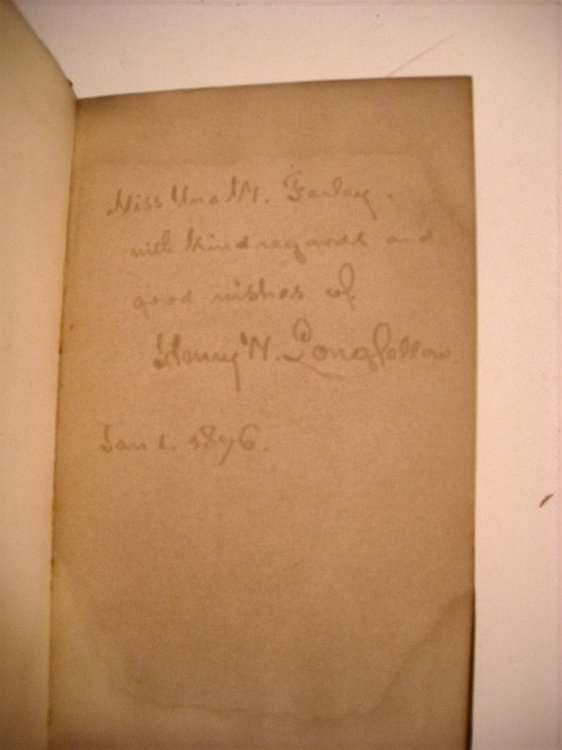 Miss Una M. Farley.
with kind regards and
good wishes of
Henry W. Longfellow
Jan 1. 1876.